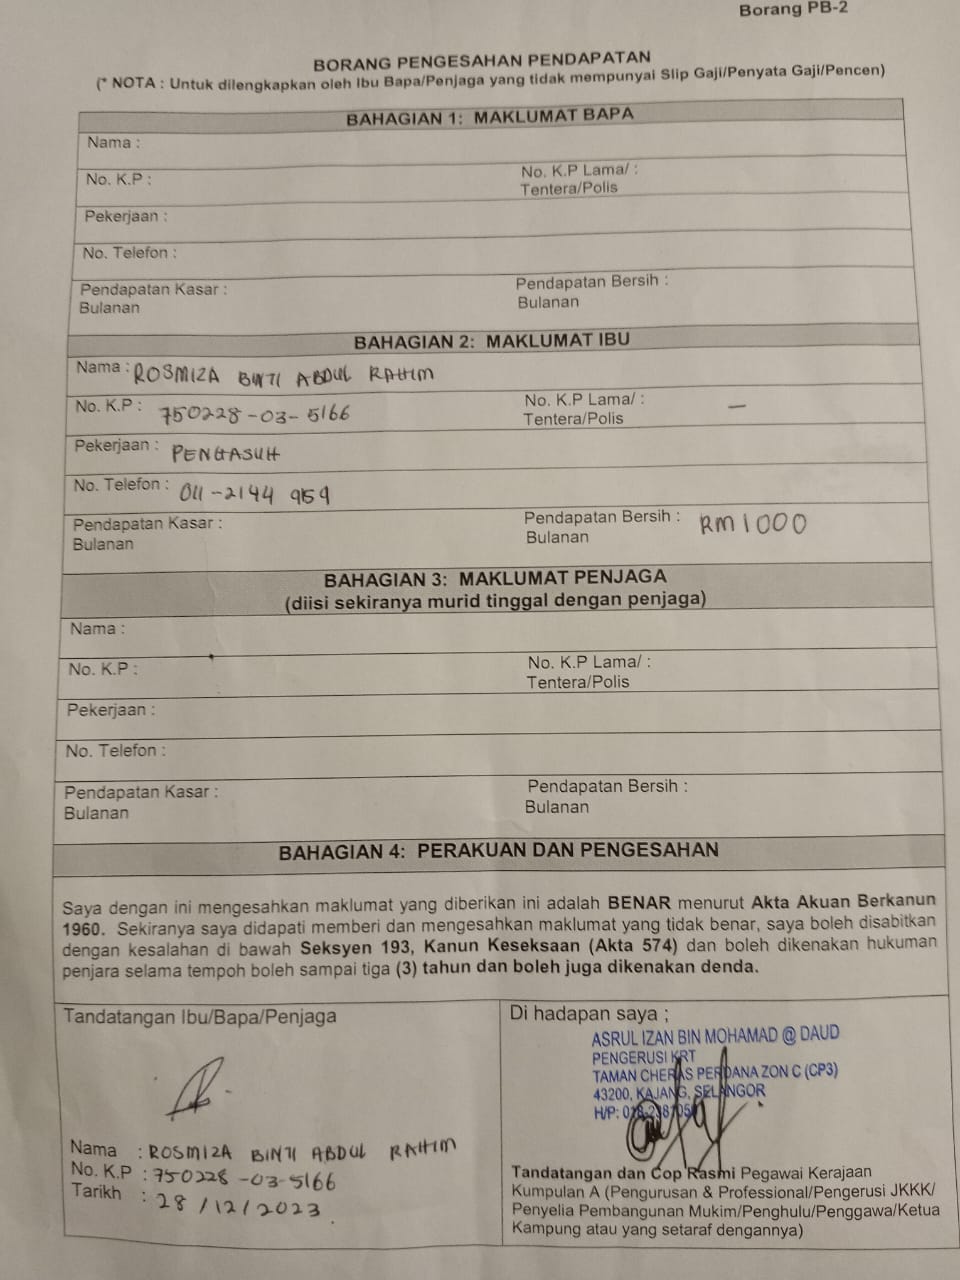 Borang PB-2
BORANG PENGESAHAN PENDAPATAN
(* NOTA : Untuk dilengkapkan oleh Ibu Bapa/Penjaga yang tidak mempunyai Slip Gaji/Penyata Gaji/Pencen)
BAHAGIAN 1: MAKLUMAT BAPA
Nama :
No. K.P : No. K.P Lama/ :
Tentera/Polis
Pekerjaan :
No. Telefon :
Pendapatan Kasar : Pendapatan Bersih :
Bulanan Bulanan
BAHAGIAN 2: MAKLUMAT IBU
Nama : ROSMIZA BINTI ABDUL RAHIM
No. K.P : 750228-03-5166 No. K.P Lama/ : —
Tentera/Polis
Pekerjaan : PENGASUH
No. Telefon : 011-2144 959
Pendapatan Kasar : Pendapatan Bersih : RM1000
Bulanan Bulanan
BAHAGIAN 3: MAKLUMAT PENJAGA
(diisi sekiranya murid tinggal dengan penjaga)
Nama :
No. K.P : No. K.P Lama/ :
Tentera/Polis
Pekerjaan :
No. Telefon :
Pendapatan Kasar : Pendapatan Bersih :
Bulanan Bulanan
BAHAGIAN 4: PERAKUAN DAN PENGESAHAN
Saya dengan ini mengesahkan maklumat yang diberikan ini adalah BENAR menurut Akta Akuan Berkanun
1960. Sekiranya saya didapati memberi dan mengesahkan maklumat yang tidak benar, saya boleh disabitkan
dengan kesalahan di bawah Seksyen 193, Kanun Keseksaan (Akta 574) dan boleh dikenakan hukuman
penjara selama tempoh boleh sampai tiga (3) tahun dan boleh juga dikenakan denda.
Tandatangan Ibu/Bapa/Penjaga
Nama : ROSMIZA BINTI ABDUL RAHIM
No. K.P : 750228-03-5166
Tarikh : 28/12/2023
Di hadapan saya ;
ASRUL IZAN BIN MOHAMAD @ DAUD
PENGERUSI KRT
TAMAN CHERAS PERDANA ZON C (CP3)
43200, KAJANG, SELANGOR
H/P:
Tandatangan dan Cop Rasmi Pegawai Kerajaan
Kumpulan A (Pengurusan & Professional/Pengerusi JKKK/
Penyelia Pembangunan Mukim/Penghulu/Penggawa/Ketua
Kampung atau yang setaraf dengannya)